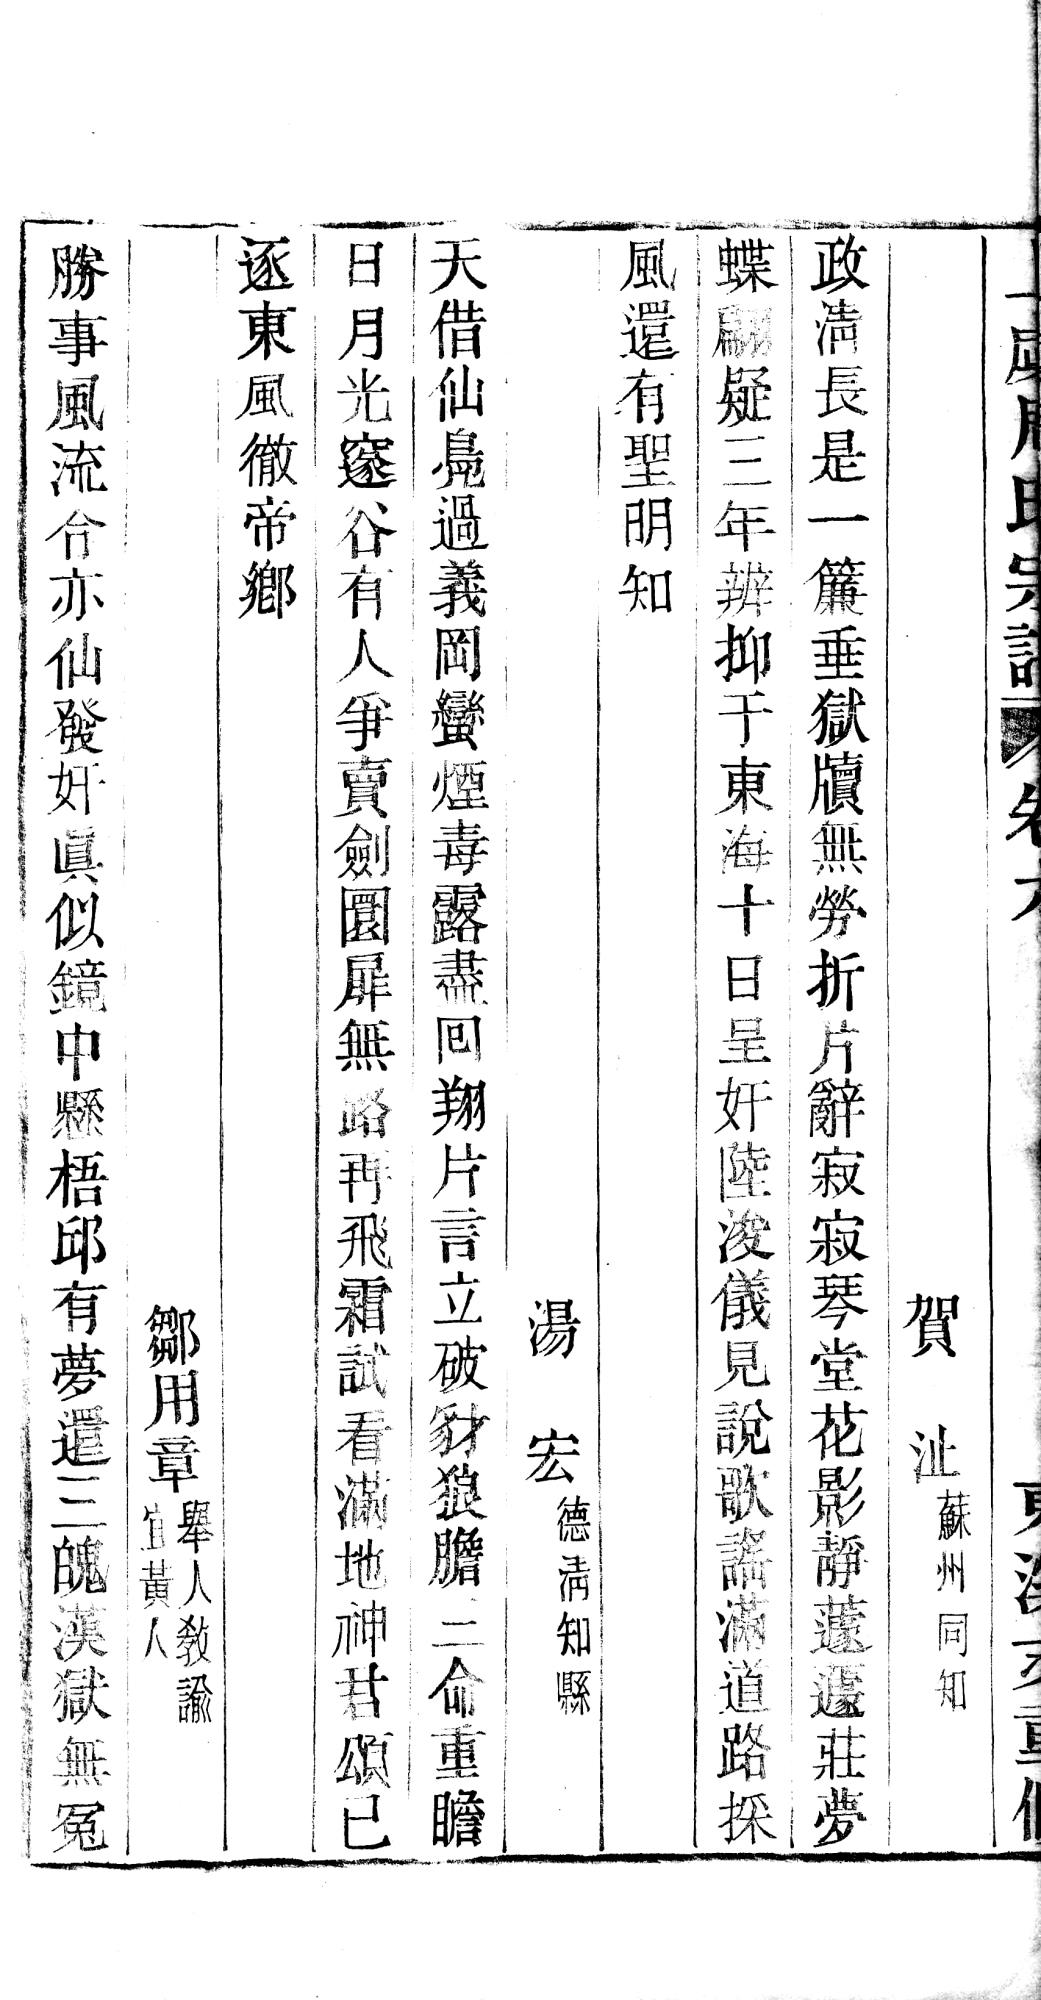 周氏宗譜 卷六
賀 沚 蘇州同知
政淸長是一簾垂獄牘無勞折片辭寂寂琴堂花影靜蘧蘧莊夢
蝶翩疑三年辨抑于東海十日呈奸陸浚儀見說歌謠滿道路採
風還有聖明知
湯 宏 德淸知縣
天借仙鳧過義岡蠻煙毒露盡回翔片言立破豺狼膽三命重瞻
日月光窽谷有人爭賣劍圜扉無路再飛霜試看滿地神君頌已
逐東風徹帝鄉
鄒用章 舉人敎諭宜黃人
勝事風流令亦仙發奸眞似鏡中懸梧邱有夢還三魄漢獄無冤